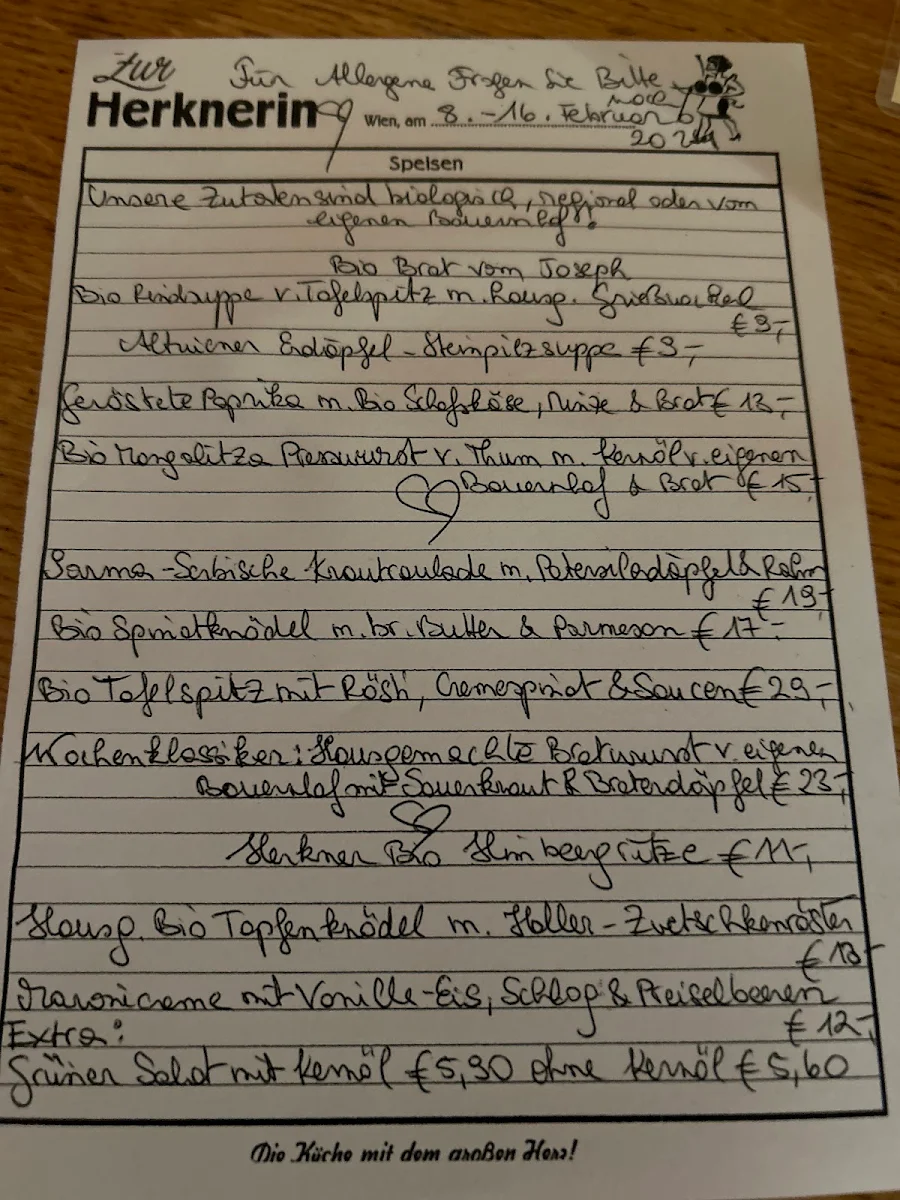 Zur Für Allergene Fragen Sie Bitte
Herknerin Wien, am 8.-16. Februar
2024
Speisen
Unsere Zutaten sind biologisch, regional oder vom
eigenen Bauernhof!
Bio Brot vom Joseph
Bio Rindsuppe v. Tafelspitz m. Hausg. Grießnockerl
€ 9,-
Altwiener Erdäpfel-Steinpilzsuppe € 9,-
Geröstete Paprika m. Bio Schafskäse, Minze & Brot € 13,-
Bio Mangalitza Presswurst v. Thum m. Kernöl v. eigenen
Bauernhof & Brot € 15,-
Sarma-Serbische Krautroulade m. Petersilerdäpfel & Rahm
€ 19,-
Bio Spinatknödel m. br. Butter & Parmesan € 17,-
Bio Tafelspitz mit Rösti, Cremespinat & Saucen € 29,-
Wochenklassiker: Hausgemachte Bratwurst v. eigenen
Bauernhof mit Sauerkraut & Braterdäpfel € 23,-
Herkner Bio Himbeergrütze € 11,-
Hausg. Bio Topfenknödel m. Holler-Zwetschkenröster
€ 13,-
Maronicreme mit Vanille-Eis, Schlag & Preiselbeeren
Extra: € 12,-
Grüner Salat mit Kernöl € 5,90 ohne Kernöl € 5,60
Die Küche mit dem großen Herz!